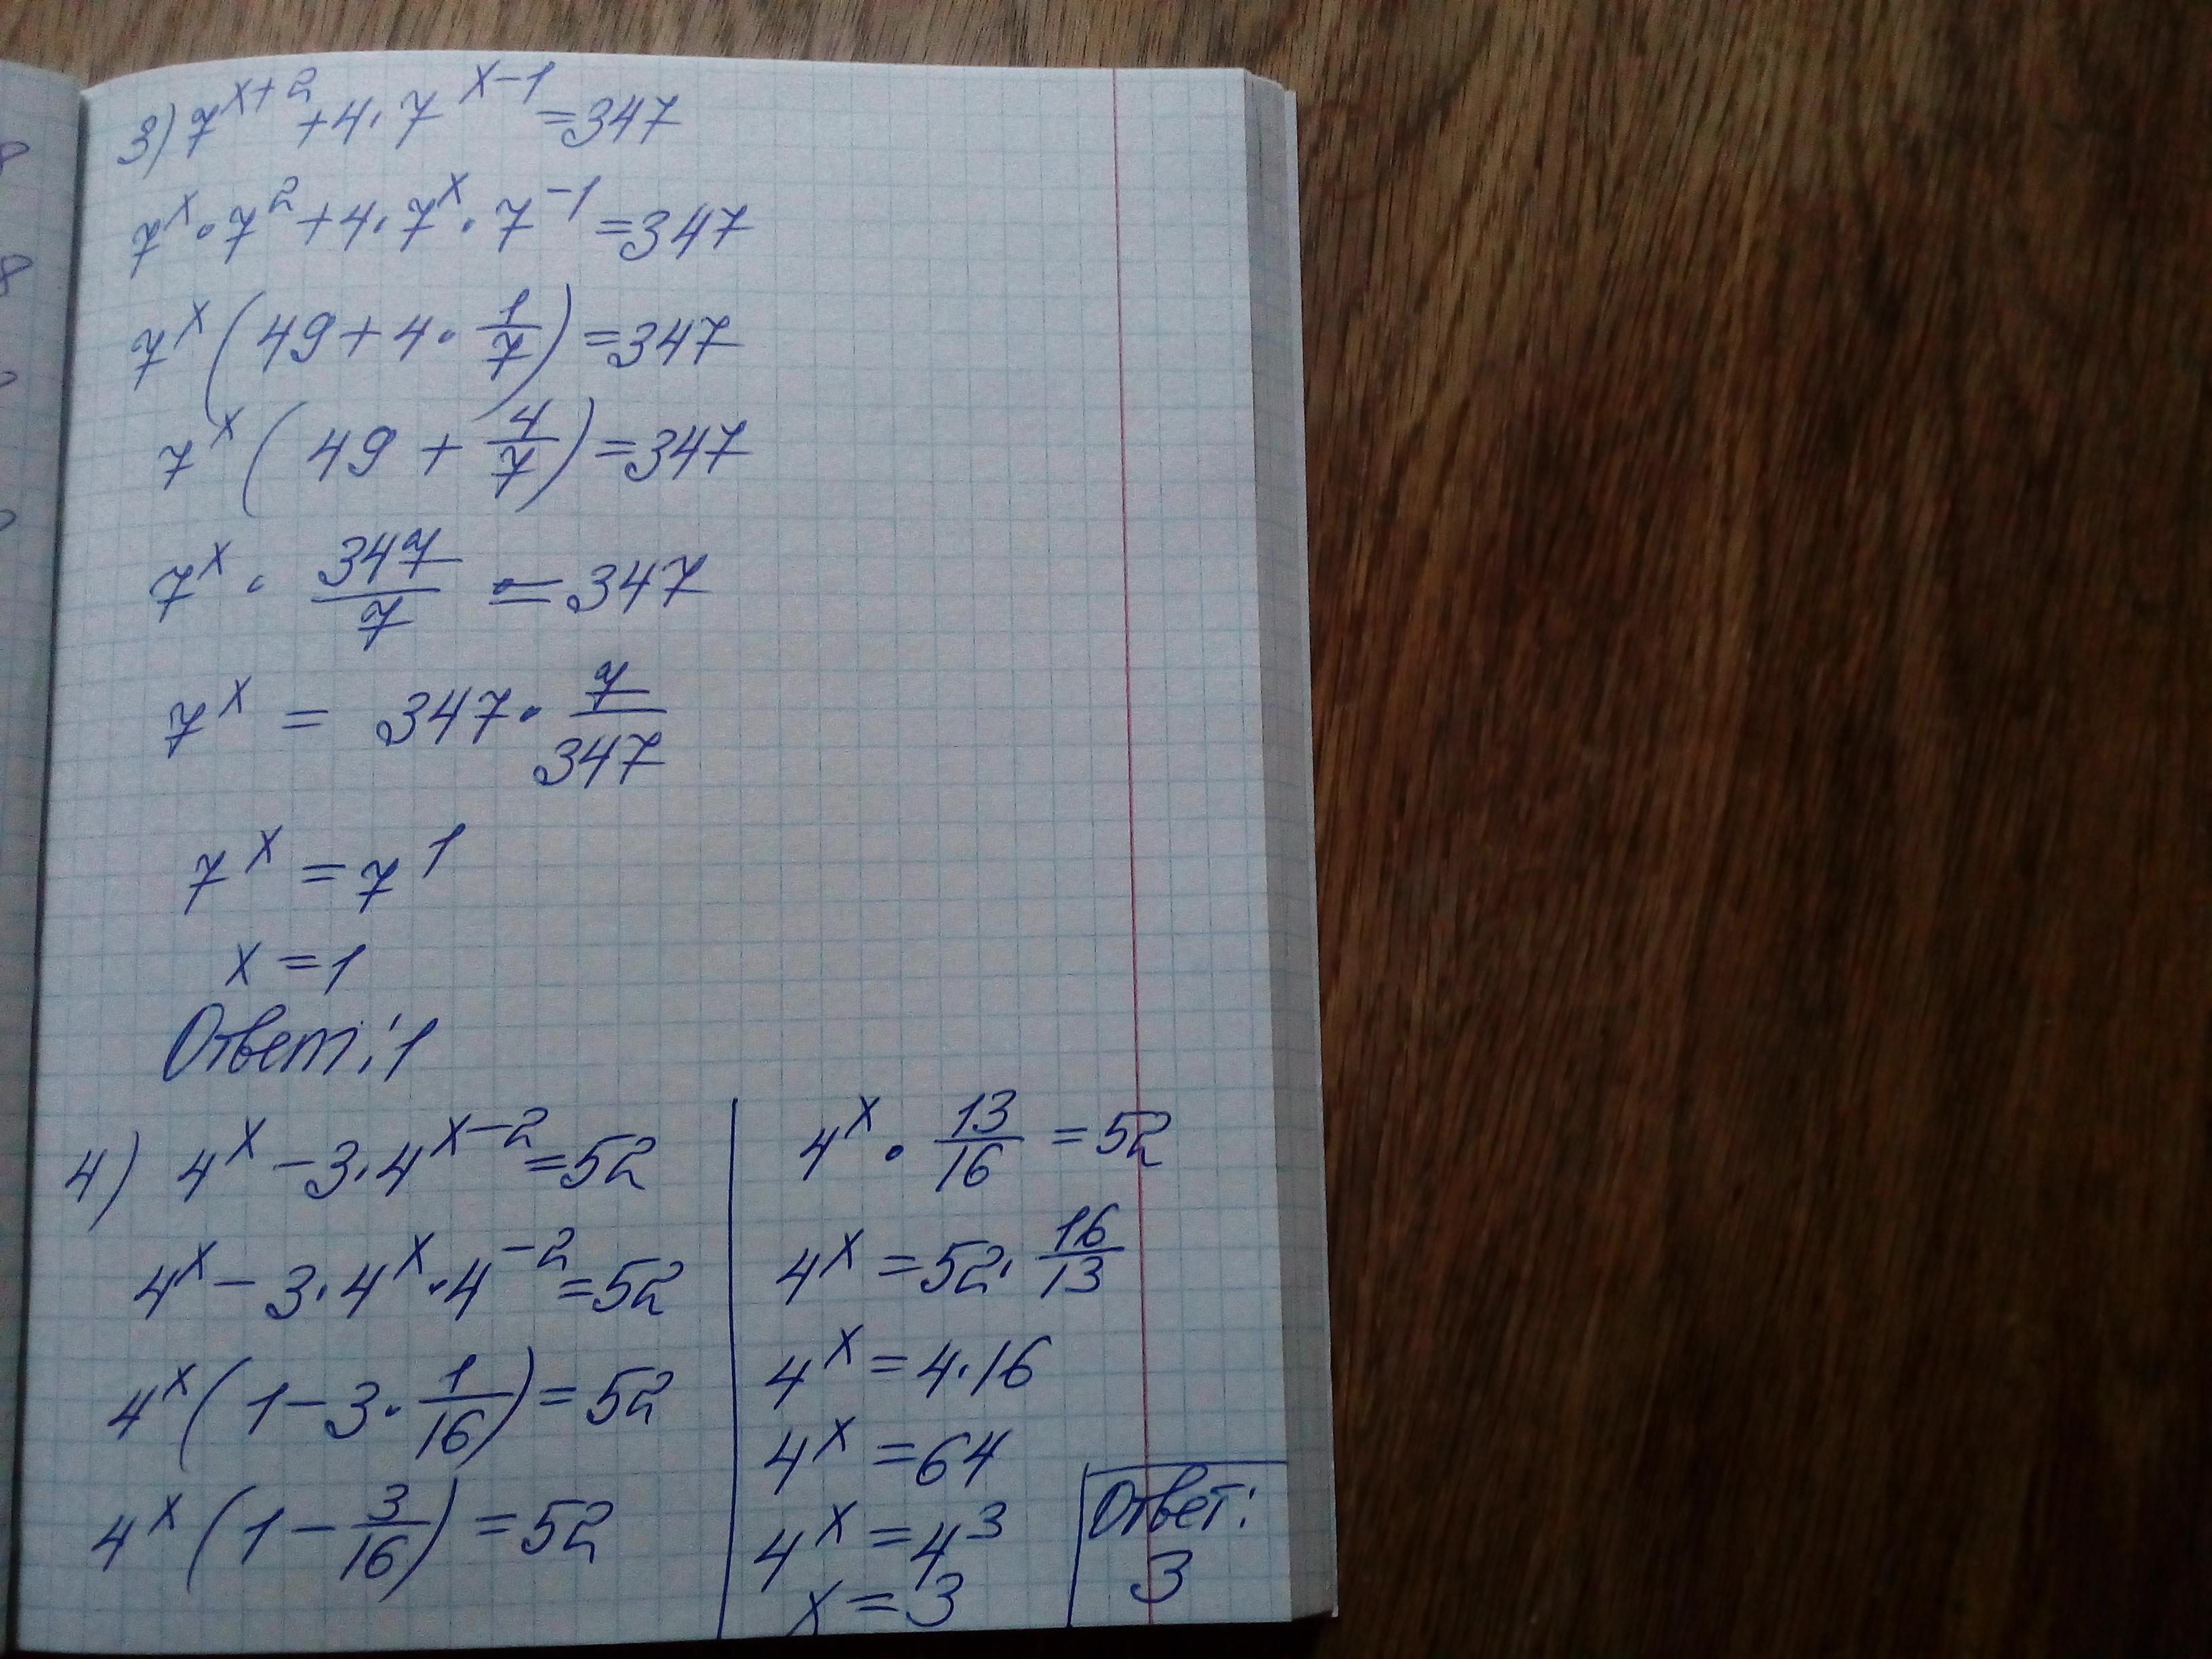 3) 7^(x+2) + 4·7^(x-1) = 347
7^x · 7^2 + 4·7^x · 7^(-1) = 347
7^x (49 + 4 · 1/7) = 347
7^x (49 + 4/7) = 347
7^x · 347/7 = 347
7^x = 347 · 7/347
7^x = 7^1
x = 1
Ответ: 1
4) 4^x - 3·4^(x-2) = 52
4^x - 3·4^x · 4^(-2) = 52
4^x (1 - 3 · 1/16) = 52
4^x (1 - 3/16) = 52
4^x · 13/16 = 52
4^x = 52 · 16/13
4^x = 4·16
4^x = 64
4^x = 4^3
x = 3
Ответ:
3